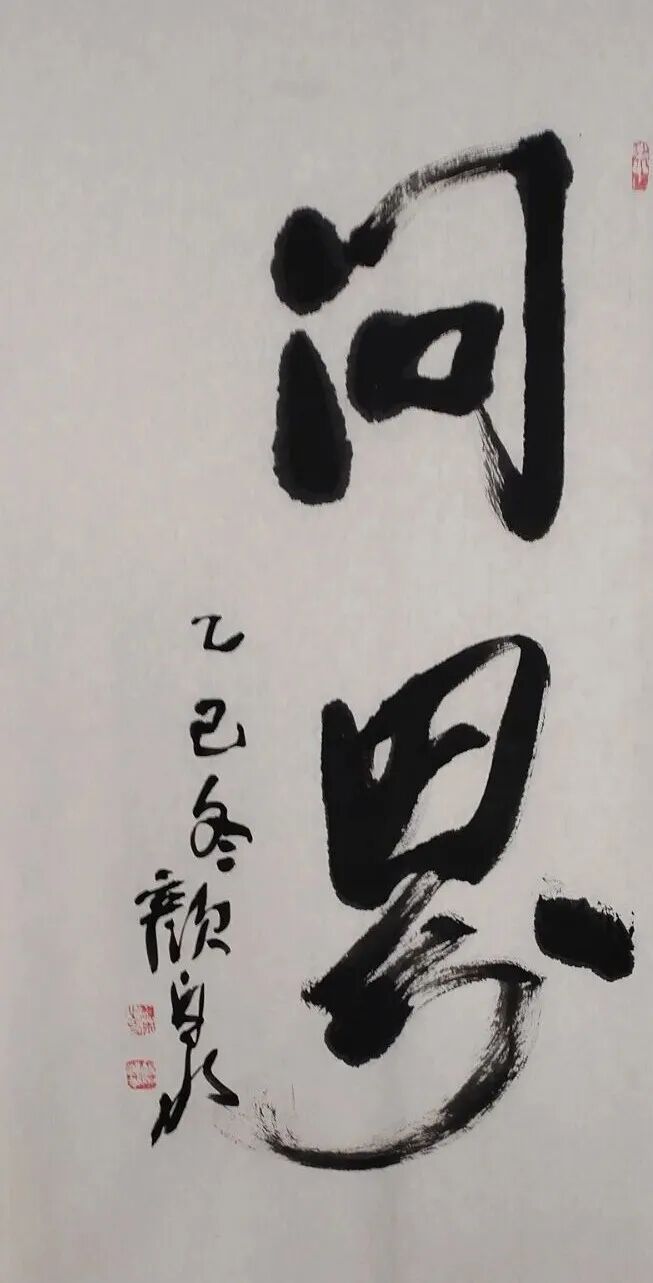 问界
乙巳冬
颜泉